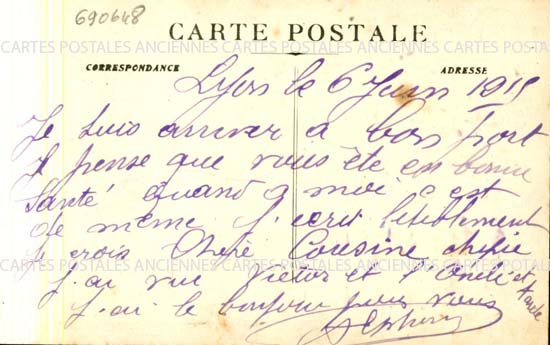 690648
CARTE POSTALE
CARTES POSTALES ANCIENNES CARTES POSTALES ANCIENNES CARTES POSTALES
CORRESPONDANCE
ADRESSE
Lyon le 6 Juin 1915
Je suis arriver a bon port
Je pense que vous ête en bonne
Santé quand a moi c'est
de même J. ecris
J. crois Chère Cousine
CARTES POSTALES ANCIENNES CARTES POSTALES ANCIENNES CARTES POSTALES
J. ai vue Victor et l'Oncle et tante
J. ai le bonjour pour vous